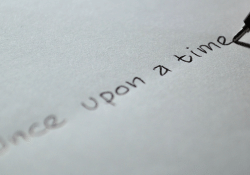 once upon a time